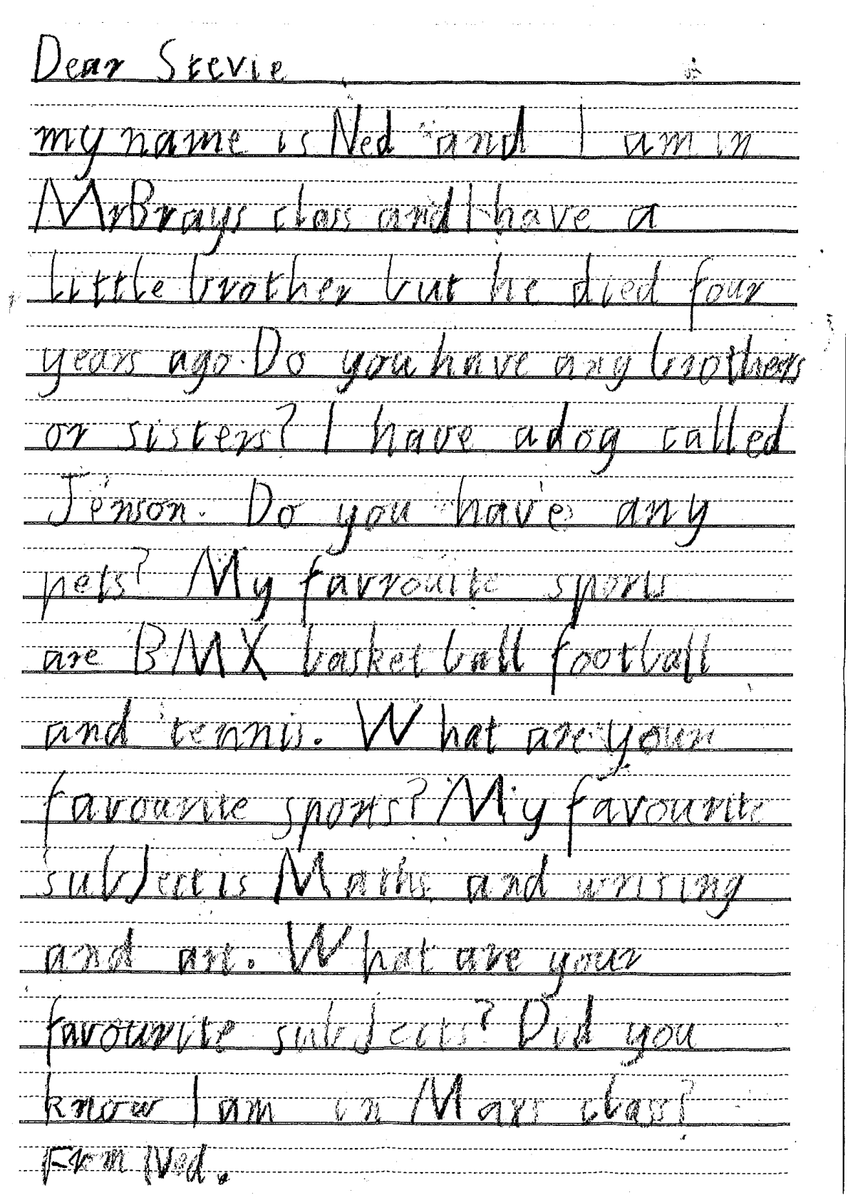 Dear Stevie
my name is Ned and I am in
MrBrays class and I have a
little brother but he died four
years ago. Do you have any brothers
or sisters? I have a dog called
Jenson. Do you have any
pets? My favrouite sports
are BMX basket ball football
and tennis. What are your
favourite sports? My favourite
subject is Maths and writing
and art. What are your
favourite subjects? Did you
know I am in Mars class?
From Ned.